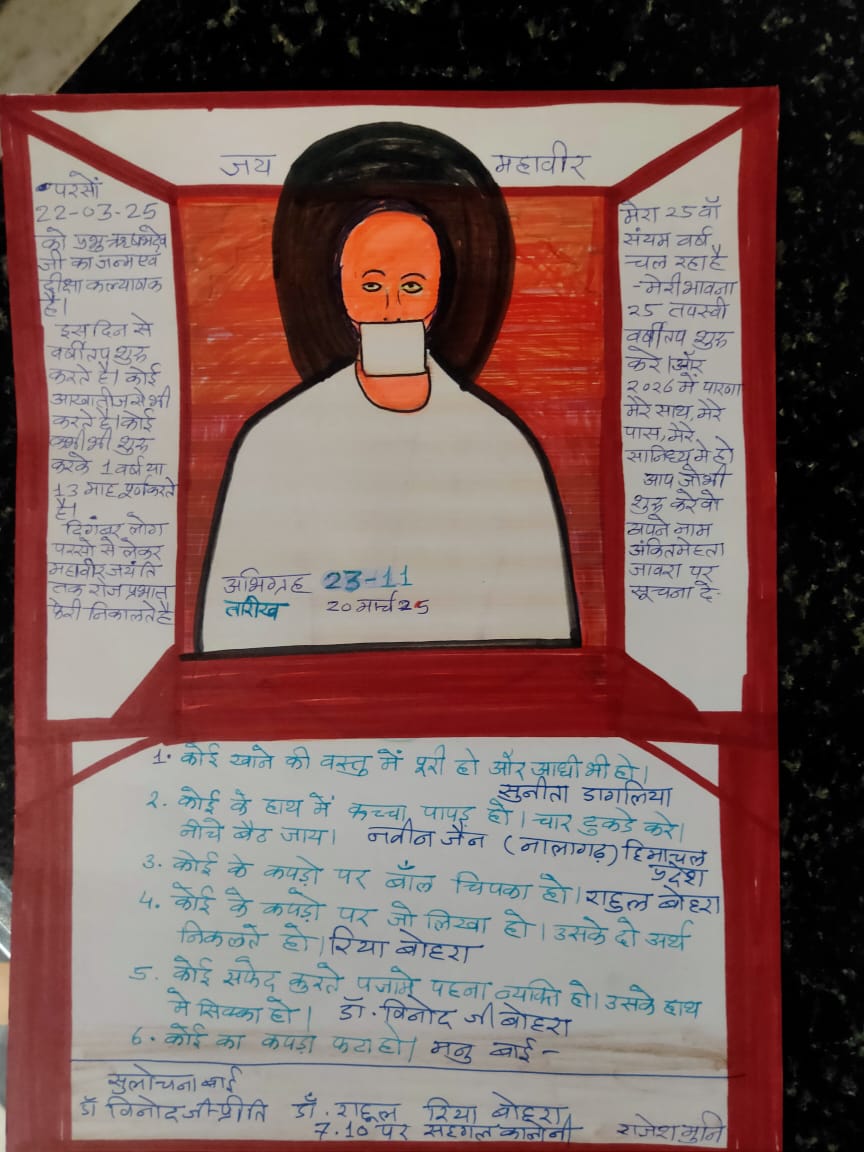 जय महावीर
परसों
22-03-25
को प्रभु ऋषभदेव
जी का जन्म एवं
दीक्षा कल्याणक
है।
इस दिन से
वर्षीतप शुरू
करते है। कोई
आखातीज से भी
करते है। कोई
कभी भी शुरू
करके 1 वर्ष या
13 माह पूर्ण करते
है।
दिगंबर लोग
परसो से लेकर
महावीर जयंति
तक रोज प्रभात
फेरी निकालते है
मेरा 25 वाँ
संयम वर्ष
चल रहा है
-मेरी भावना
25 तपस्वी
वर्षीतप शुरू
करे। और
2026 में पारणा
मेरे साथ, मेरे
पास, मेरे
सानिध्य मे हो
आप जो भी
शुरू करे वो
अपने नाम
अंकित मेहता
जावरा पर
सूचना दे-
अभिग्रह 23-11
तारीख 20 मार्च 25
1. कोई खाने की वस्तु में पूरी हो और आधी भी हो।
सुनीता डागलिया
2. कोई के हाथ में कच्चा पापड़ हो। चार टुकडे करे।
नीचे बैठ जाय। नवीन जैन (नालागढ़) हिमाचल
प्रदेश
3. कोई के कपड़ो पर बाँल चिपका हो। राहुल बोहरा
4. कोई के कपड़ो पर जो लिखा हो। उसके दो अर्थ
निकलते हो। रिया बोहरा
5. कोई सफेद कुरते पजामे पहना व्यक्ति हो। उसके हाथ
मे सिक्का हो। डॉ. विनोद जी बोहरा
6. कोई का कपड़ा फटा हो। मनु बाई -
सुलोचना बाई
डॉ विनोदजी-प्रीति डॉ. राहुल रिया बोहरा
7.10 पर सहगल कालोनी राजेश मुनि